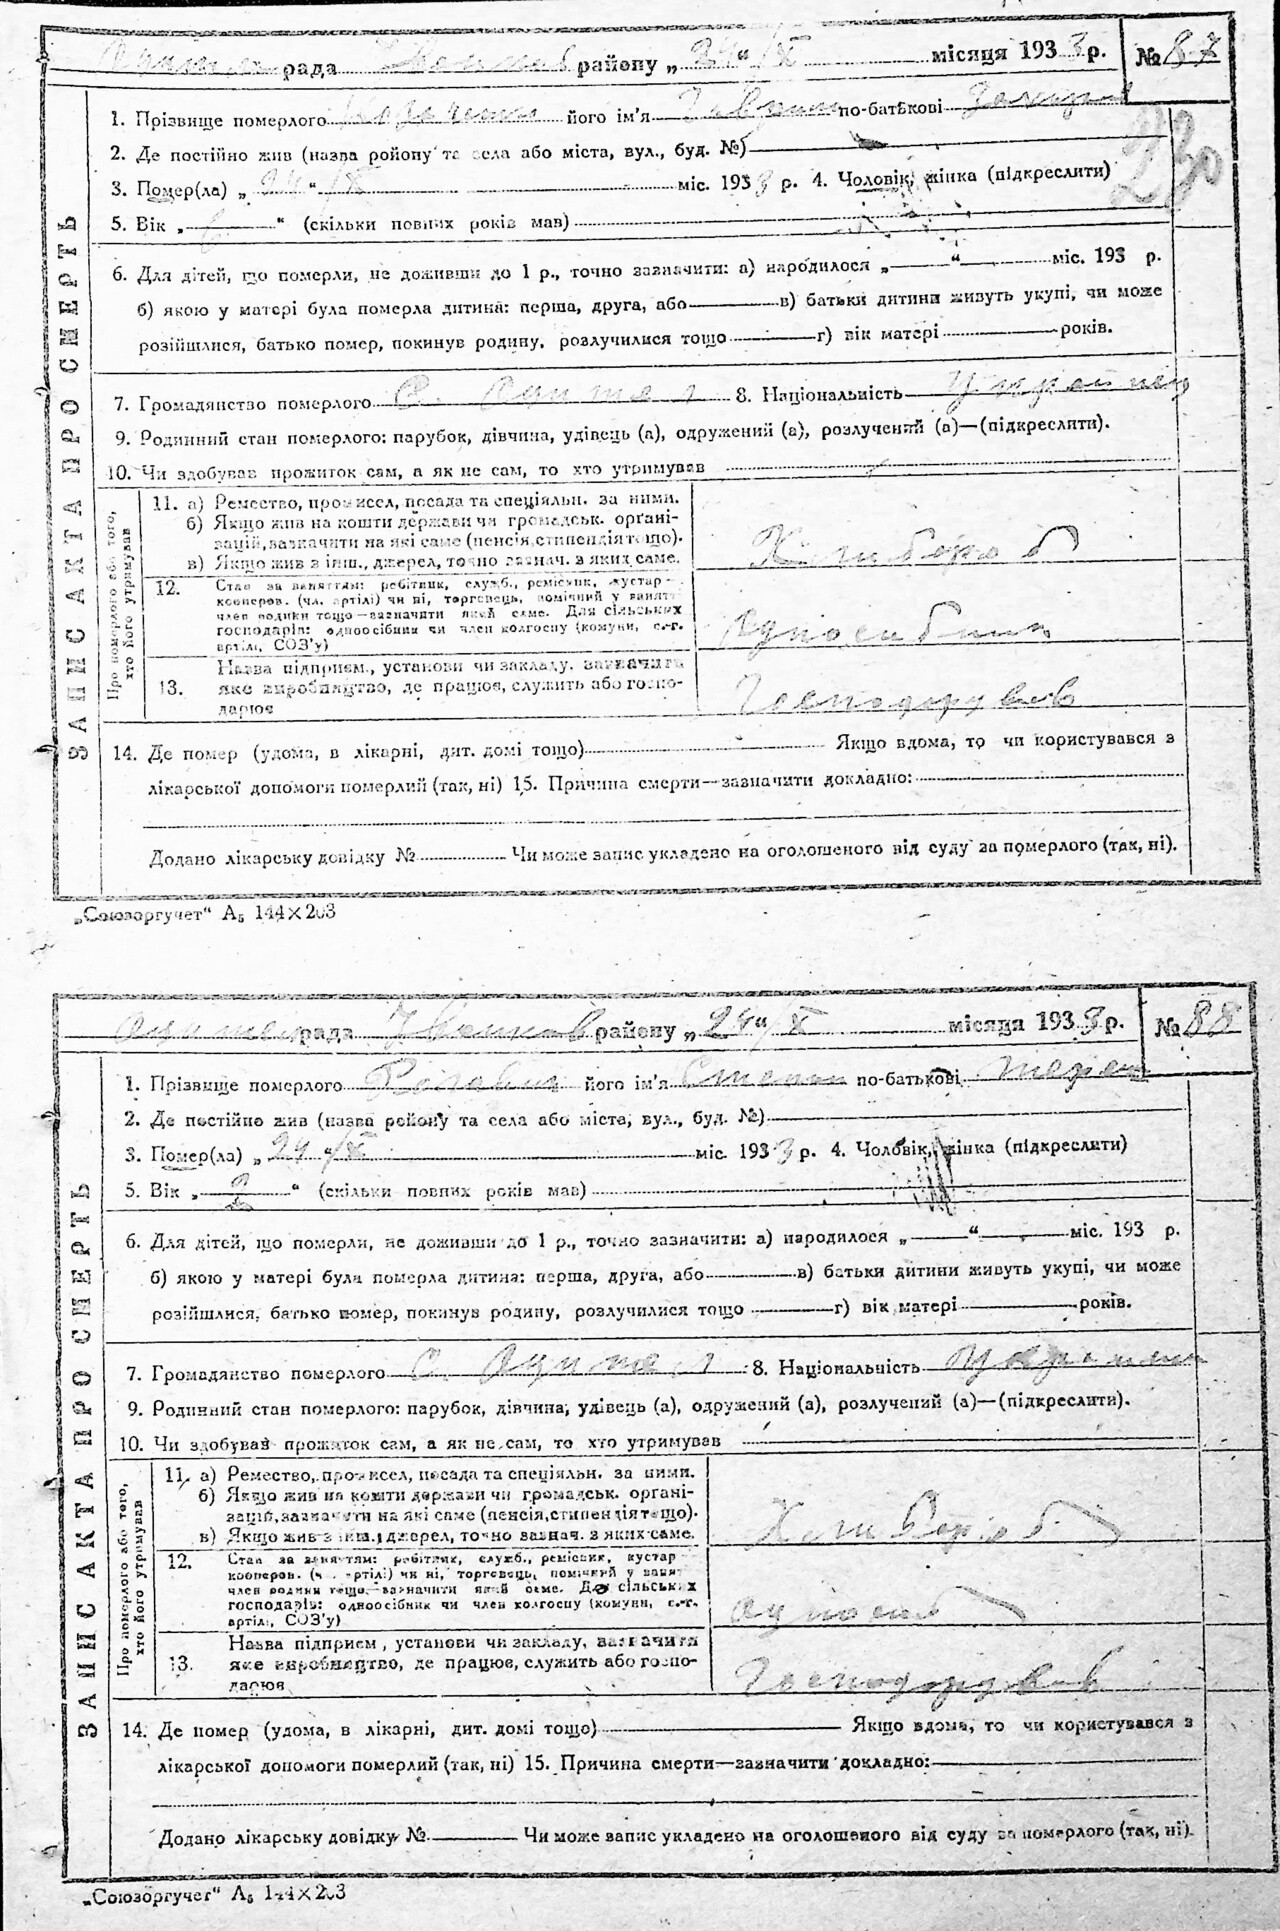 рада району „24“/X місяця 1933 р. № 87
1. Прізвище померлого його ім'я по-батькові
230
2. Де постійно жив (назва ройону та села або міста, вул., буд. №)
3. Помер(ла) „24“/X міс. 1933 р. 4. Чоловік, жінка (підкреслити)
5. Вік „ “ (скільки повних років мав)
6. Для дітей, що померли, не доживши до 1 р., точно зазначити: а) народилося „ “ міс. 193 р.
б) якою у матері була померла дитина: перша, друга, або в) батьки дитини живуть укупі, чи може
розійшлися, батько помер, покинув родину, розлучилися тощо г) вік матері років.
7. Громадянство померлого С. 8. Національність Украінец
9. Родинний стан померлого: парубок, дівчина, удівець (а), одружений (а), розлучений (а)—(підкреслити).
10. Чи здобував прожиток сам, а як не сам, то хто утримував
ЗАПИС АКТА ПРО СМЕРТЬ
Про померлого або того,
хто його утримував
11. а) Ремество, промисел, посада та спеціяльн. за ними.
б) Якщо жив на кошти держави чи громадськ. орґані-
зацій, зазначити на які саме (пенсія, стипендія тощо).
в) Якщо жив з інш., джерел, точно зазнач. з яких саме.
Хлібороб
12. Стан за заняттям: робітник, служб., ремісник, кустар
кооперов. (чл. артілі) чи ні, торговець, помічний у занятт
член родини тощо—зазначити який саме. Для сільських
господарів: одноосібник чи член колгоспу (комуни, с.-г.
артілі, СОЗ'у)
Одноосібник
13. Назва підприєм., установи чи закладу, зазначити
яке виробництво, де працює, служить або госпо-
дарює
Господарував
14. Де помер (удома, в лікарні, дит. домі тощо) Якщо вдома, то чи користувався з
лікарської допомоги померлий (так, ні) 15. Причина смерти—зазначити докладно:
Додано лікарську довідку № Чи може запис укладено на оголошеного від суду за померлого (так, ні).
„Союзоргучет“ А₅ 144×203
рада району „24“/X місяця 1933 р. № 88
1. Прізвище померлого його ім'я Степан по-батькові
2. Де постійно жив (назва району та села або міста, вул., буд. №)
3. Помер(ла) „24“/X міс. 1933 р. 4. Чоловік, жінка (підкреслити)
5. Вік „ “ (скільки повних років мав)
6. Для дітей, що померли, не доживши до 1 р., точно зазначити: а) народилося „ “ міс. 193 р.
б) якою у матері була померла дитина: перша, друга, або в) батьки дитини живуть укупі, чи може
розійшлися, батько помер, покинув родину, розлучилися тощо г) вік матері років.
7. Громадянство померлого С. 8. Національність
9. Родинний стан померлого: парубок, дівчина, удівець (а), одружений (а), розлучений (а)—(підкреслити).
10. Чи здобував прожиток сам, а як не сам, то хто утримував
ЗАПИС АКТА ПРО СМЕРТЬ
Про померлого або того,
хто його утримував
11. а) Ремество, промисел, посада та спеціяльн. за ними.
б) Якщо жив на кошти держави чи громадськ. орґані-
зацій, зазначити на які саме (пенсія, стипендія тощо).
в) Якщо жив з інш., джерел, точно зазнач. з яких саме.
Хлібороб
12. Стан за заняттям: робітник, служб., ремісник, кустар
кооперов. (чл. артілі) чи ні, торговець, помічний у занят
член родини тощо—зазначити який саме. Для сільських
господарів: одноосібник чи член колгоспу (комуни, с.-г.
артілі, СОЗ'у)
одноосіб
13. Назва підприєм, установи чи закладу, зазначити
яке виробництво, де працює, служить або госпо-
дарює
Господарував
14. Де помер (удома, в лікарні, дит. домі тощо) Якщо вдома, то чи користувався з
лікарської допомоги померлий (так, ні) 15. Причина смерти—зазначити докладно:
Додано лікарську довідку № Чи може запис укладено на оголошеного від суду за померлого (так, ні).
„Союзоргучет“ А₅ 144×203